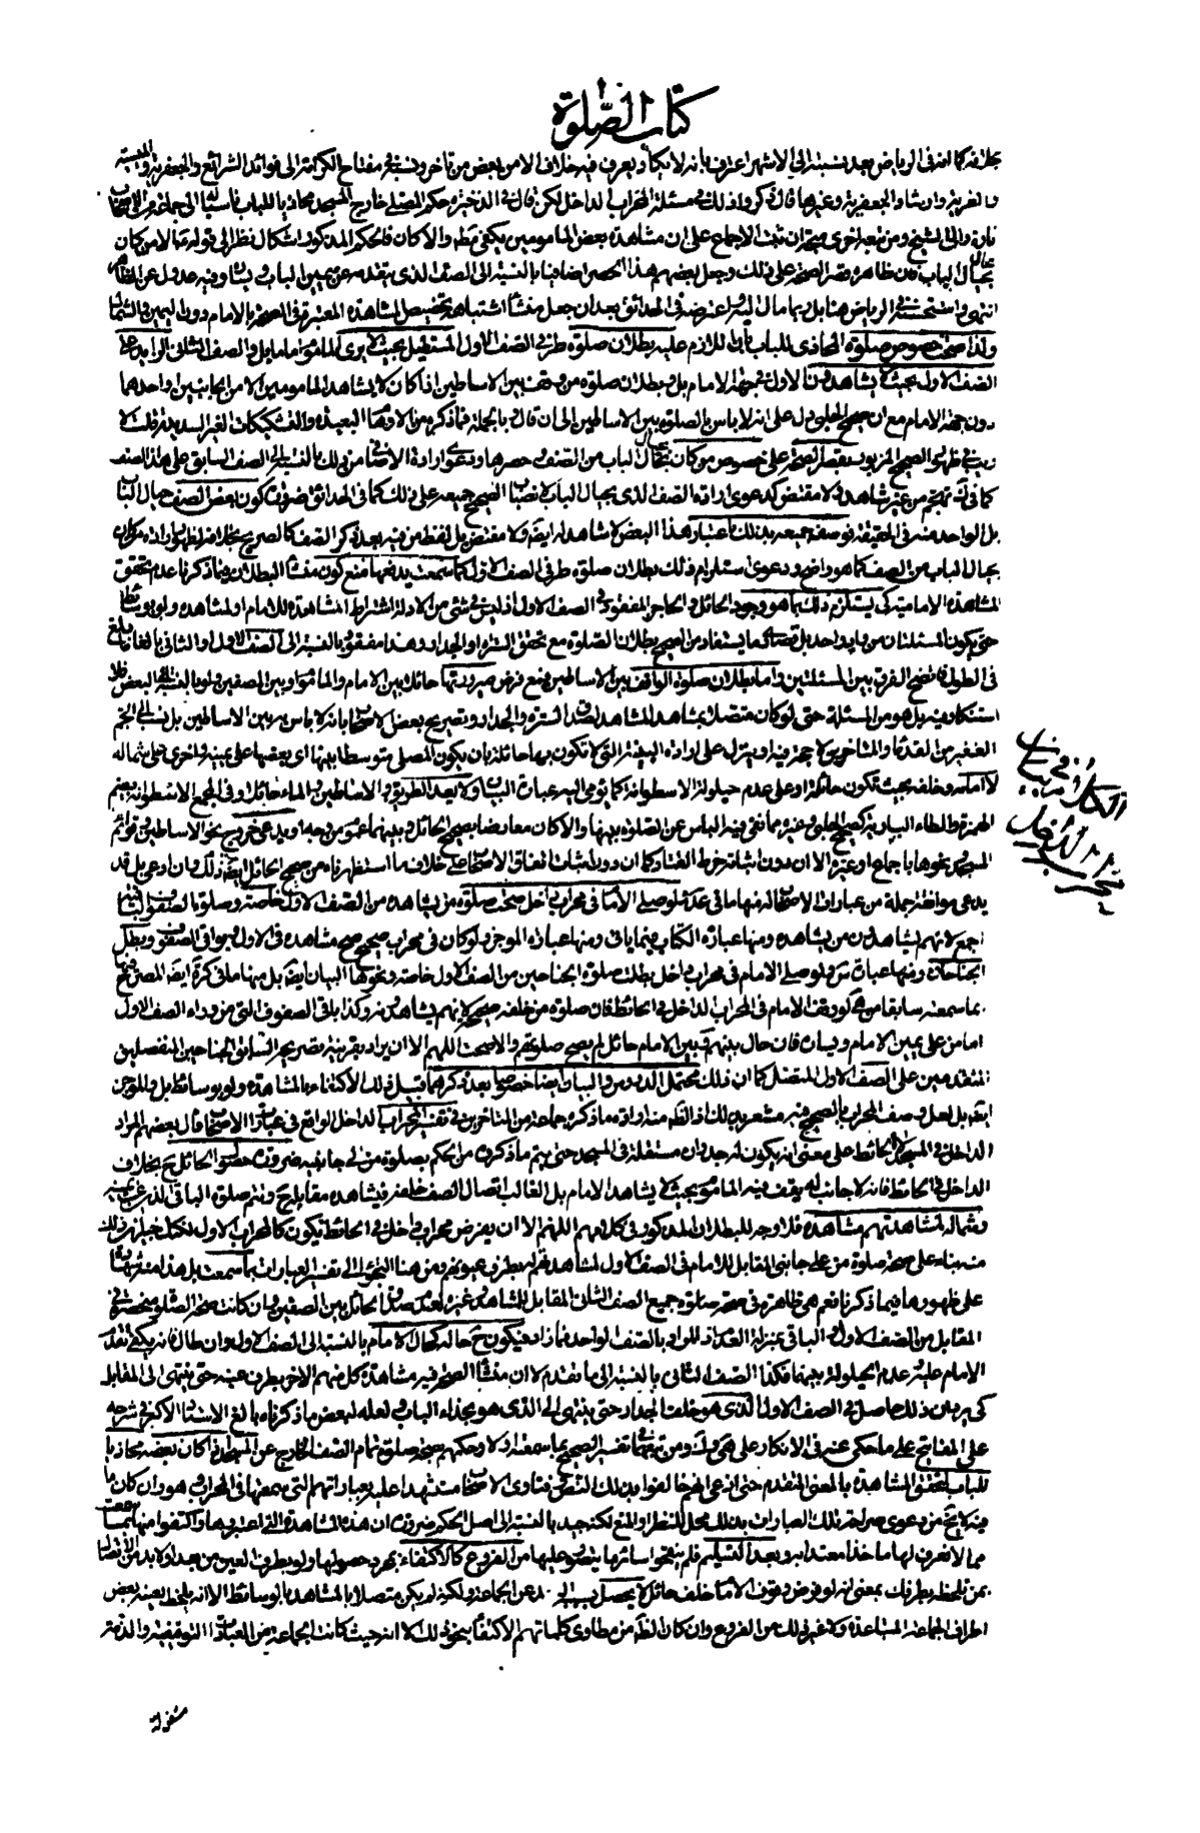 كتاب الصلوة
بخلافه كما انه فى الرياض بعد نسبته الى الاشهر اعترف بانه لا يكاد يعرف فيه خلاف الا من بعض من تاخر ونسبه فى مفتاح الكرامة الى فوائد الشرائع والجعفرية والميسية
والغرية وارشاد الجعفرية وغيرها قال ذكروا ذلك فى مسئلة المحراب الداخل لكن قال فى الذخيرة حكم المصلى خارج المسجد محاذيا للباب ناسبا له الى جماعة من الاصحاب
تارة والى الشيخ ومن تبعه اخرى متجه ان ثبت الاجماع على ان مشاهدة بعض المامومين يكفى مطلقا والا كان فالحكم المذكور اشكال نظرا الى قوله الا من كان
بحيال الباب فان ظاهره قصر الصحة على ذلك وجعل بعضهم هذا الحصر اضافيا بالنسبة الى الصف الذى يتقدمه عن يمين الباب ويساره وفيه عدول عن الظاهر
انتهى واستحسنه فى الرياض هنا بل ربما مال اليه واعترضه فى الحدائق بعد ان جعل منشأ اشتباهه تخصيص المشاهدة المعتبرة فى الصحة بالامام دون اليمين والشمال
ولذا صحت خصوص صلوة المحاذى للباب بان اللازم عليه بطلان صلوة طرفى الصف الاول المستطيل بحيث لا يرى الماموم امامه بل والصف الثانى الزايد على
الصف الاول بحيث لا يشاهدون الاول فى جهة الامام بل وبطلان صلوة من وقف بين الاساطين اذا كان لا يشاهد المامومين الا من الجانبين او احدهما
دون جهة الامام مع ان صحيح الحلبى دل على انه لا باس بالصلوة بين الاساطين الى ان قال وبالجملة فما ذكره من الاوهام البعيدة والتشكيكات الغير السديدة قلت لا
ريب فى ظهور الصحيح المزبور بقصر الصحة على خصوص من كان بحيال الباب من الصف وحصرها ودعوى ارادة الاضافى من ذلك بالنسبة الى الصف السابق على هذا الصف
بل الواحد منه فى الحقيقة فوصف جميعه بذلك باعتبار هذا البعض لا شاهد له ايضا ولا مقتض بل لفظ من فيه بعد ذكر الصف كالصريح بخلافه لظهور ارادة من كان
بحيال الباب من الصف كما هو واضح ودعوى استلزام ذلك بطلان صلوة طرفى الصف الاول كما سمعت يدفعها منع كون منشأ البطلان فيما ذكرنا عدم تحقق
المشاهدة الامامية كى يستلزم ذلك بل هو وجود الحائل والحاجز المفقود فى الصف الاول اذ ليس فى شئ من الادلة اشتراط المشاهدة للامام او لمشاهده ولو بوسائط
حتى يكون المسئلتان من واد واحد بل قصارى ما يستفاد من الصحيح بطلان الصلوة مع تحقق السترة او الجدار وهذا مفقود بالنسبة الى الصف الاول والثانى بالغا ما بلغ
فى الطول فاتضح الفرق بين المسئلتين واما بطلان صلوة الواقف بين الاساطين فمع فرض صيرورتها حائلا بين الامام والماموم او بين الصفين ولو بالنسبة الى البعض فلا
استنكار فيه بل هو من المسئلة حتى لو كان متصلا بمشاهد المشاهد لصدق السترة والجدار وتصريح بعض الاصحاب بانه لا باس به بين الاساطين بل نسب الى الجم
الغفير من القدماء والمتاخرين لا حجة فيه او ينزل على ارادة البينية التى لا تكون بها حائلة بان يكون المصلى متوسطا بينها اى بعضها على يمينه واخرى على شماله
لا امامه وخلفه بحيث تكون حائلة او على عدم حيلولة الاسطوانة كما يؤمى اليه عبارة البيان ولا يعد الطريق والاساطين والماء حائلا وفى المجمع الاسطوانة بضم
الهمزة والطاء السارية كصحيح الحلبى وغيره مما نفى فيه الباس عن الصلوة بينها والا كان معارضا بصحيح الحائل وبينهما عموم من وجه او يدعى خروج نحو الاساطين وقوائم
المسجد ونحوها باجماع او غيره الا ان دون اثباته خرط القتاد كما ان دون اثبات اتفاق الاصحاب على خلاف ما استظهرناه من صحيح الحائل ايضا ذلك وان ادعى بل قد
يدعى موافقة جملة من عبارات الاصحاب له منها ما فى عد ولو صلى الامام فى محراب داخل صحت صلوة من يشاهده من الصف الاول خاصة وصلوة الصفوف الباقية
اجمع لانهم يشاهدون من يشاهده ومنها عبارة الكتاب فيما ياتى ومنها عبارة الموجز ولو كان فى محراب صحيح صح مشاهده فى الاول وبواقى الصفوف وبطل
الجناحان ومنها عبارة س ولو صلى الامام فى محراب داخل بطلت صلوة الجناحين من الصف الاول خاصة ونحوها البيان ايضا بل منها ما فى كرة ايضا المصرح فيها
بما سمعته سابقا من هى لو وقف الامام فى المحراب الداخل فى الحائط فان صلوة من خلفه صحيحة لانهم يشاهدونه وكذا باقى الصفوف التى من وراء الصف الاول
اما من على يمين الامام ويساره فان حال بينهم وبين الامام حائل لم يصح صلوتهم والا صحت اللهم الا ان يراد بقرينة تصريحه السابق الجناحين المنفصلين
المتقدمين على الصف الاول المتصل كما ان ذلك محتمل الدروس والبيان ايضا خصوصا بعد ذكرهما قبيل ذلك الاكتفاء بالمشاهدة ولو بوسائط بل والموجز
ايضا بل لعل وصف المحراب بالصحيح فيه مشعر بذلك اذ الظاهر منه ارادة ما ذكره جماعة من المتاخرين فى تفسير المحراب الداخل الواقع فى عبارات الاصحاب قال بعضهم المراد
الداخل فى المسجد لا الحائط على معنى انه يكون له جدران مستقلة فى المسجد حتى يتم ما ذكروه من الحكم بصلوة من الى جانبيه ضرورة حصول الحائل ح بخلاف
الداخل فى الحائط فانه لا جانب له يقف فيه الماموم بحيث لا يشاهد الامام بل الغالب اتصال الصف خلفه فيشاهده مقابله ح وتتم صلوة الباقى الذين عن يمينه
وشماله لمشاهدتهم مشاهده فلا وجه للبطلان المذكور فى كلامهم اللهم الا ان يفرض محراب داخل فى الحائط يكون كالمحراب الاول لكنك خبير ان ذلك
منه بناء على صحة صلوة من على جانبى المقابل للامام فى الصف الاول لمشاهدتهم له بطرف عيونهم ومن هنا التجؤا الى تفسير العبارات بما سمعت بل هذا منشأ شهادتها
على ظهورها فيما ذكرنا نعم هى ظاهرة فى صحة صلوة جميع الصف الثانى المقابل للمشاهد وغيره لعدم صدق الحائل بين الصفين وان كانت صحة الصلوة منحصرة فى
المقابل من الصف الاول الباقى بمنزلة العدم اذ المراد بالصف الواحد فما زاد فيكون ح حاله كحال الامام بالنسبة الى الصف الاول وان طال فانه يكفى تقدم
الامام عليه وعدم الحيلولة بينهما فكذا الصف الثانى بالنسبة الى ما تقدم لا ان منشأ الصحة فيه مشاهدة كل منهم الاخر بطرف عينه حتى ينتهى الى المقابل
كى يرد ان ذلك حاصل فى الصف الاول الذى هو خلف الجدار حتى ينتهى الى الذى هو بحذاء الباب ولعله لبعض ما ذكرناه بالغ الاستاد الاكبر فى شرحه
على المفاتيح على ما حكى عنه فى الانكار على هى وك ومن تبعهما تفسير الصحيح بما سمعته اولا وحكمهم بصحة صلوة تمام الصف الخارج عن المسجد اذا كان بعضه محاذيا
للباب لتحقق المشاهدة بالمعنى المتقدم حتى انه ادعى انهم خالفوا بذلك النص وفتاوى الاصحاب مستشهدا عليه بعباراتهم التى بعضها فى المحراب وهو وان كان ما
فيه لا يخ من دعوى صراحة تلك العبارات بذلك محل للنظر والمنع لكنه جيد بالنسبة الى اصل الحكم ضرورة ان هذه المشاهدة التى اعتبروها واكتفوا منها بما سمعت
مما لا نعرف لها ماخذا معتدا به وبعد التسليم فلم ينقحوا سائر ما يتفرع عليها من الفروع كالاكتفاء بمجرد حصولها ولو بطرف العين من بعد او لا بد من الاتصال
بمن تلحظه بطرفك بمعنى انه لو فرض وقوف الامام خلف حائل لا يحصل بسببه البعد عن الجماعة ولكنه لم يكن متصلا بالمشاهد بالوسائط الا انه يلحظ بعينه بعض
اطراف الجماعة المتباعدة ولا غير ذلك من الفروع وان كان الظاهر من مطاوى كلماتهم الاكتفاء بنحو ذلك الا انه حيث كانت الجماعة من العبادات التوقيفية والذمة
مشغولة
الكلام فى بيان
المحراب الداخل